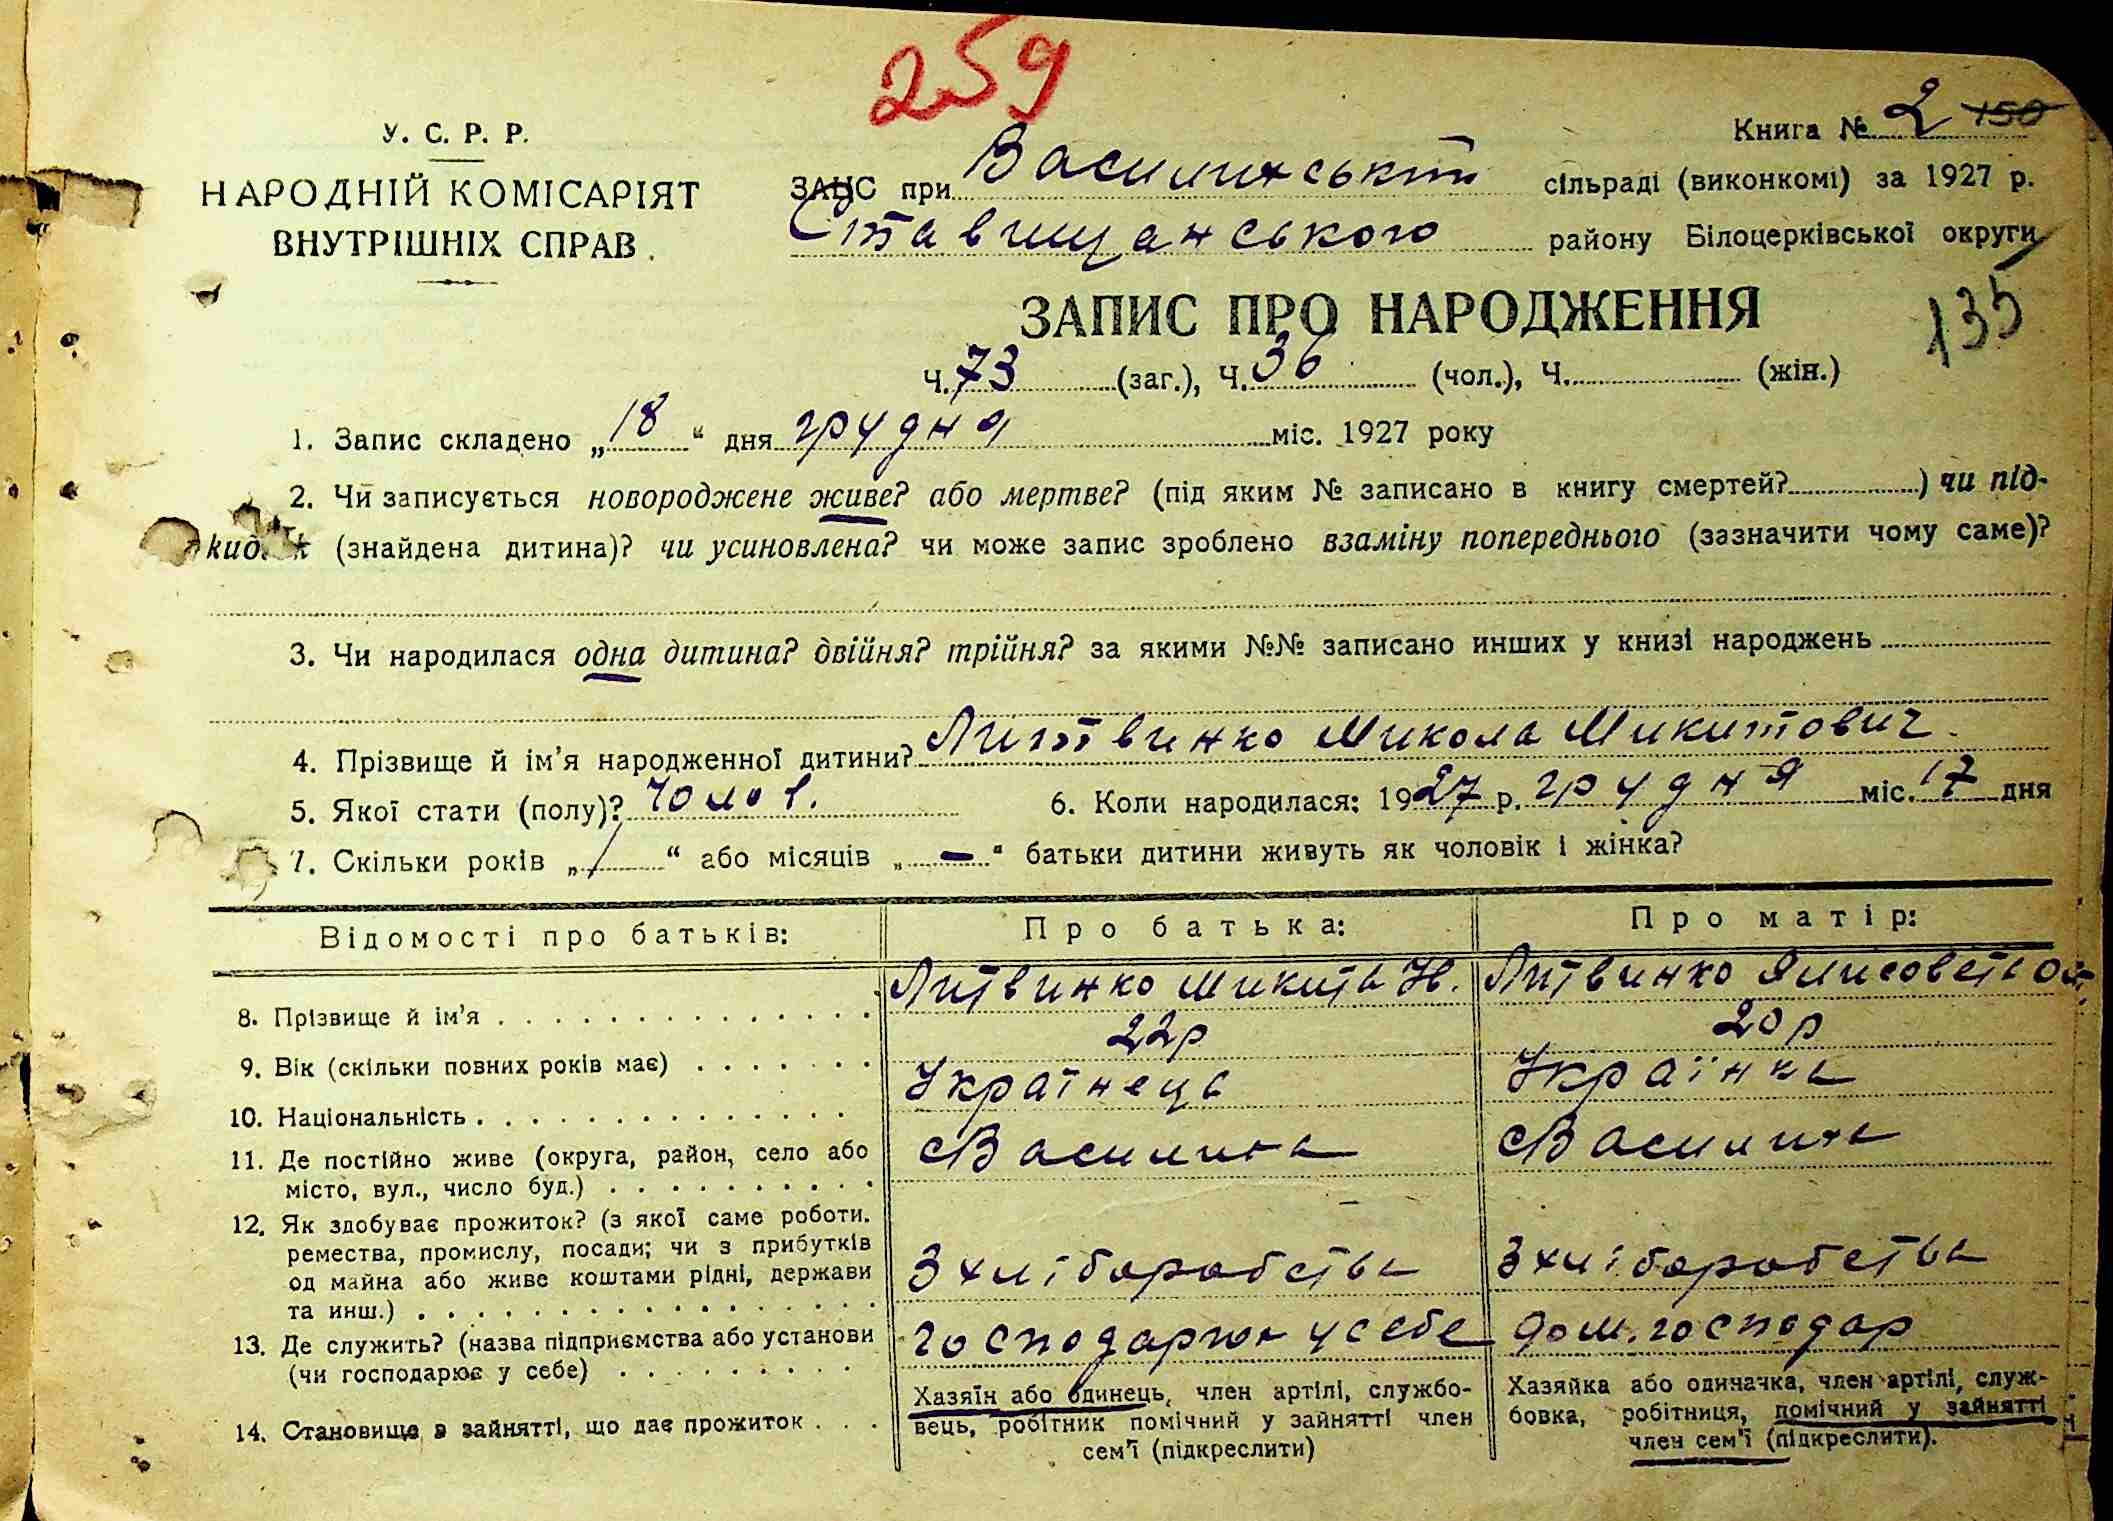 259
Книга № 2 150
У. С. Р. Р.
НАРОДНІЙ КОМІСАРІЯТ
ВНУТРІШНІХ СПРАВ.
ЗАЦС при Василиський сільраді (виконкомі) за 1927 р.
Ставищанського району Білоцерківської округи
135
ЗАПИС ПРО НАРОДЖЕННЯ
Ч. 73 (заг.), Ч. 36 (чол.), Ч. (жін.)
1. Запис складено „18“ дня грудня міс. 1927 року
2. Чи записується новороджене живе? або мертве? (під яким № записано в книгу смертей? ) чи під-
кидьок (знайдена дитина)? чи усиновлена? чи може запис зроблено взаміну попереднього (зазначити чому саме)?
3. Чи народилася одна дитина? двійня? трійня? за якими №№ записано инших у книзі народжень
4. Прізвище й ім'я народженної дитини? Литвинко Микола Микитович.
5. Якої стати (полу)? Чолов. 6. Коли народилася: 1927 р. грудня міс. 17 дня
7. Скільки років „1“ або місяців „-“ батьки дитини живуть як чоловік і жінка?
Відомості про батьків: Про батька: Про матір:
8. Прізвище й ім'я Литвинко Микита Н. Литвинко Ялисовета
9. Вік (скільки повних років має) 22р 20р
10. Національність Українець Українка
11. Де постійно живе (округа, район, село або
місто, вул., число буд.) с Василиха с Василиха
12. Як здобуває прожиток? (з якої саме роботи.
ремества, промислу, посади; чи з прибутків
од майна або живе коштами рідні, держави
та инш.) З хліборобства З хліборобства
13. Де служить? (назва підприємства або установи
(чи господарює у себе) господарюн у себе дом. господар
14. Становище в зайнятті, що дає прожиток
Хазяїн або одинець, член артілі, службо-
вець, робітник помічний у зайнятті член
сем'ї (підкреслити)
Хазяйка або одиначка, член артілі, служ-
бовка, робітниця, помічний у зайнятті
член сем'ї (підкреслити).